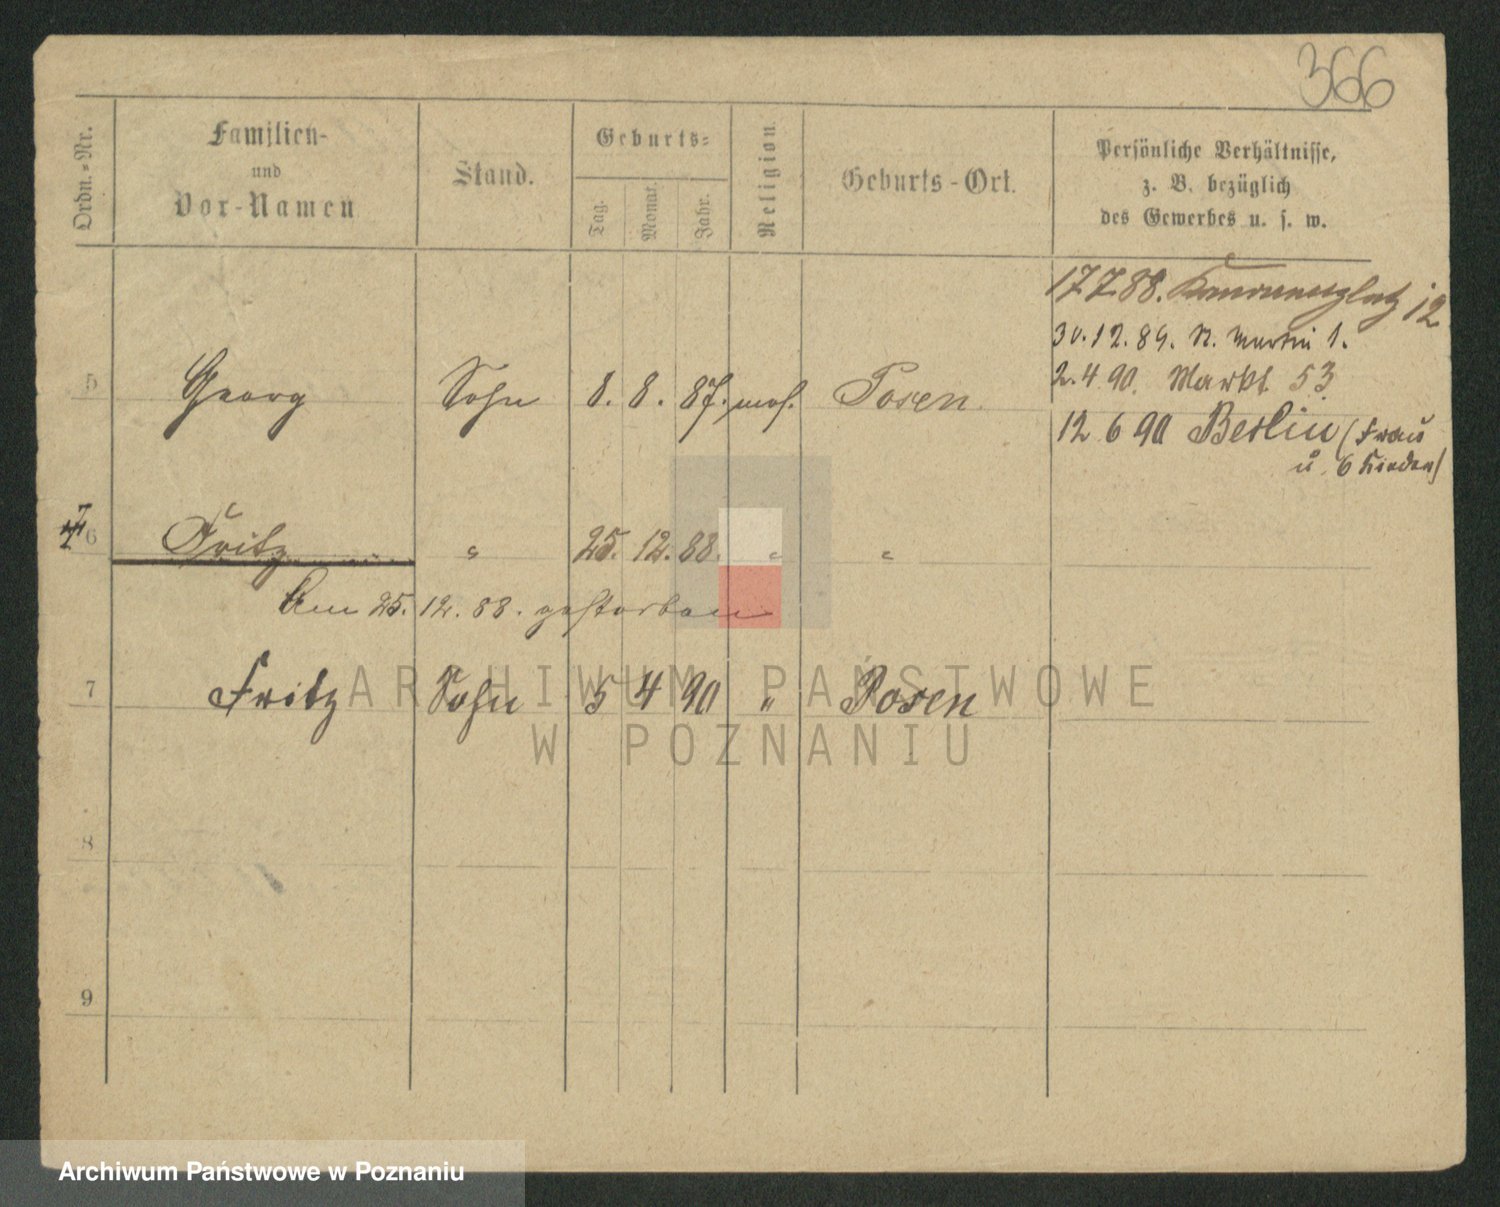 366
Ordn.-Nr.
Familien-
und
Vor-Namen
Stand.
Geburts-
Tag.
Monat.
Jahr.
Religion
Geburts-Ort.
Persönliche Verhältnisse,
z. B. bezüglich
des Gewerbes u. s. w.
17 7 88. 12
30.12.89. St. Martin 1.
2.4 90. Markt 53.
12 6 90 Berlin (Frau
u. 6 Kinder)
5 Georg Sohn 8. 8. 87. mos. Posen.
6 Fritz " 25. 12. 88. " "
Am 25. 12. 88. gestorben
7 Fritz Sohn 5 4 90 " Posen
8
9
ARCHIWUM PAŃSTWOWE
W POZNANIU
Archiwum Państwowe w Poznaniu